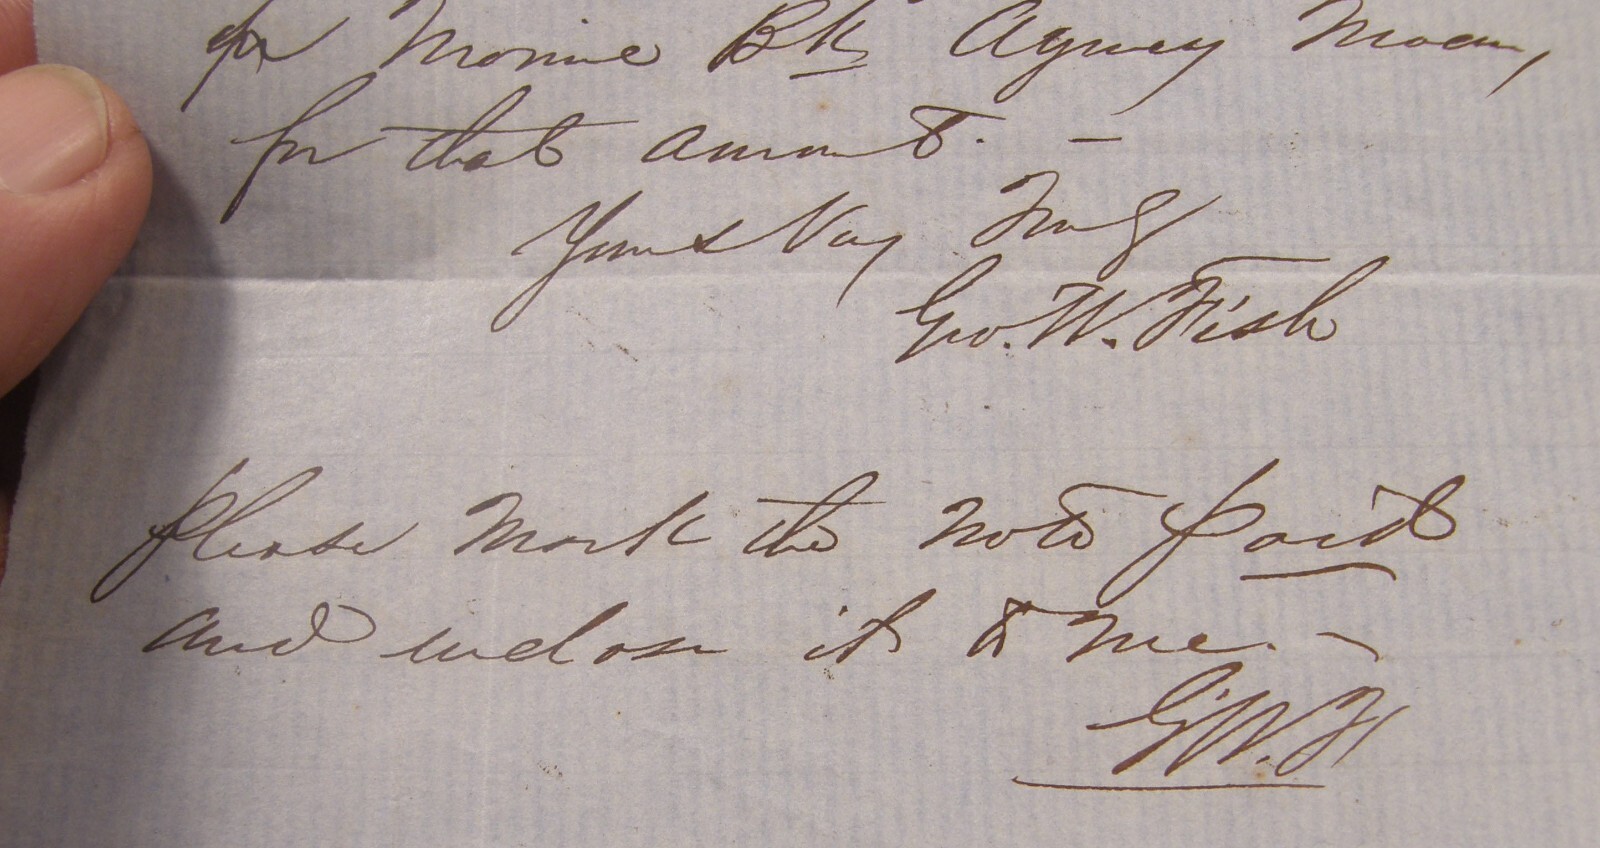 for Bk Agency Macon,
for that amount. —
Yours Very Truly
Geo. W. Fish
Please mark the note paid
and inclose it to me. —
G.W.F